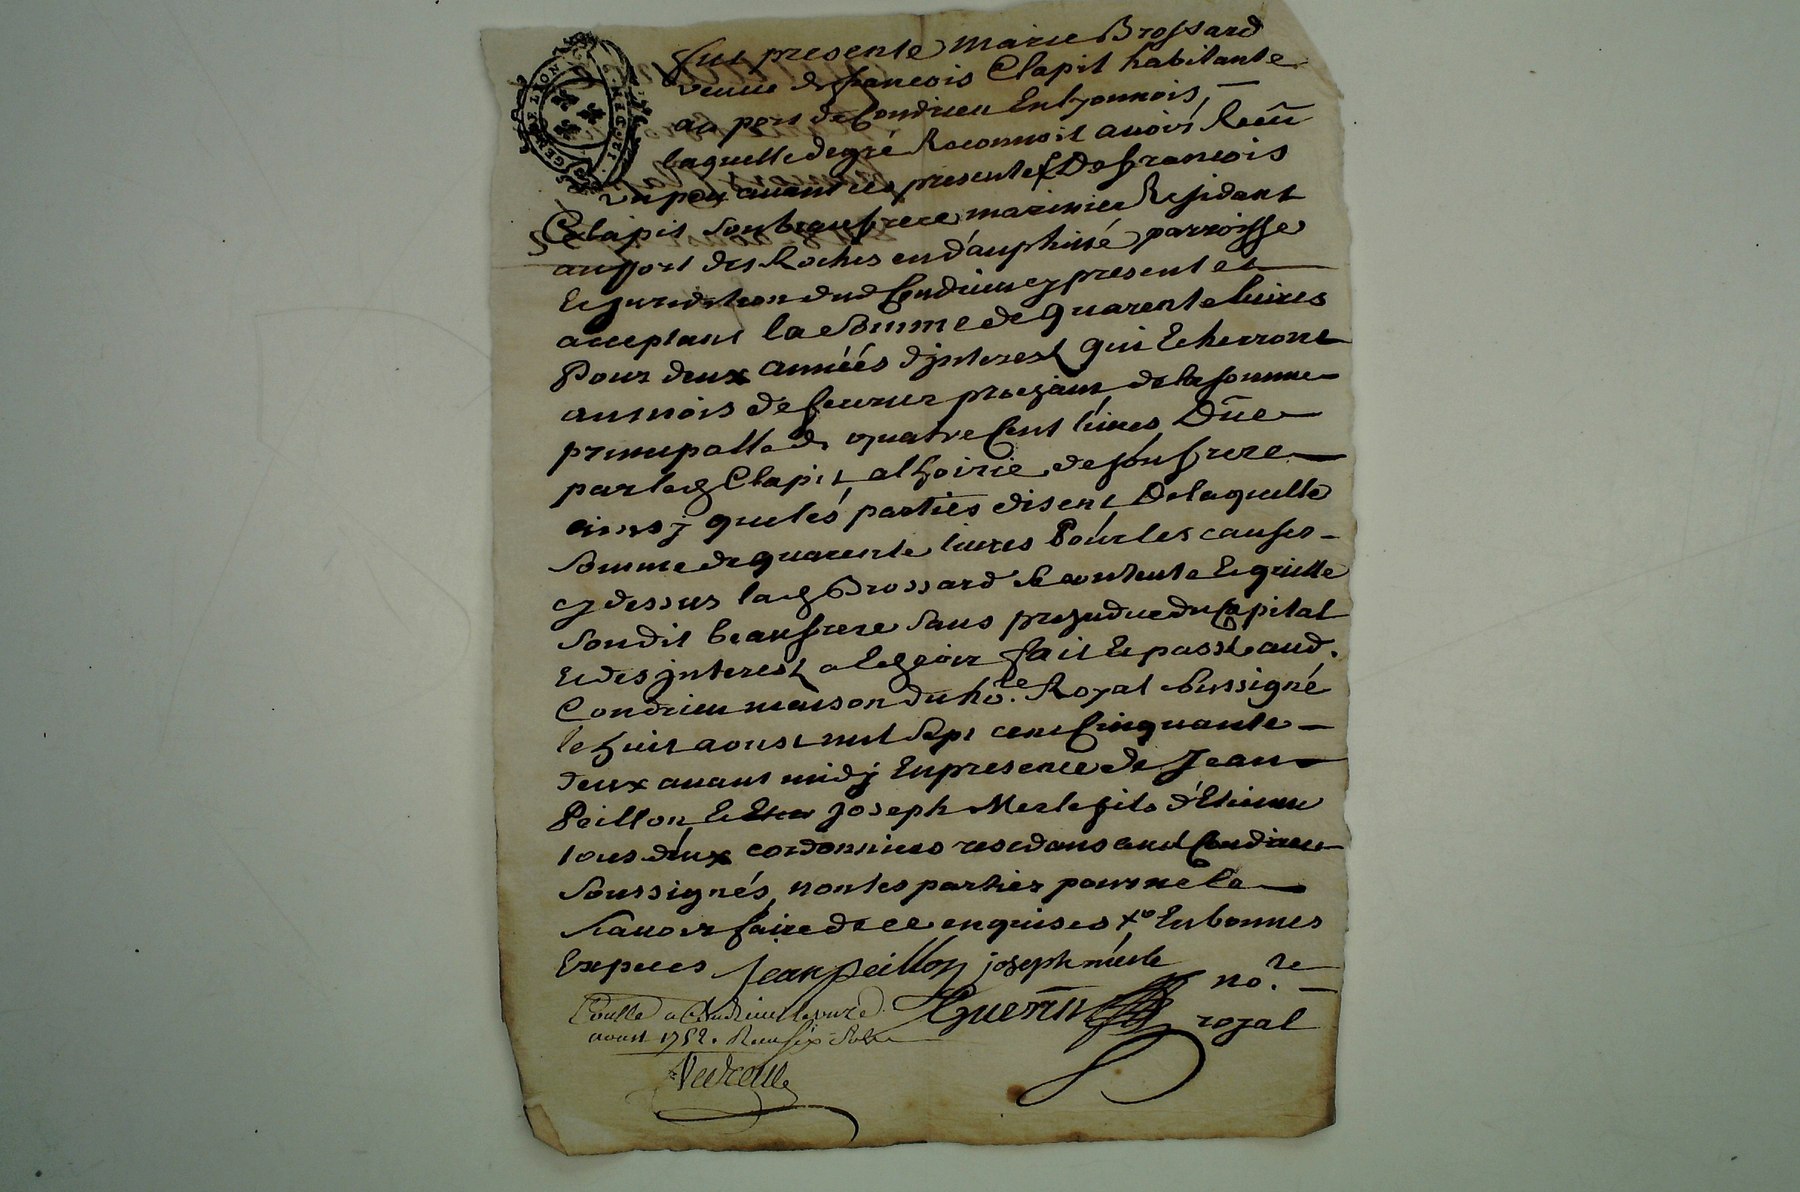 Fut presente Marie Brossard
veuve de francois Clapit habitante
au port de Condrieu En lyonnois,
laquelle de gré Reconnoit avoir Recû
un peu avant ces presentes De francois
Clapit son beaufrere marinier Residant
au port des Roches en dauphiné parroisse
Et jurisdition dud Condrieu cy present et
acceptant la somme de quarente livres
Pour deux années d'jnterest qui Echerront
au mois de fevrier prochain de la somme
principalle de quatre Cent livres Dûe
par led Clapit a lhoirie de son frere
ainsy que les parties disent, De laquelle
somme de quarente livres Pour les causes
cy dessus lad Brossard se contente Et quitte
Son dit beaufrere sans prejudice du Capital
Et des jnterest a Echeoir fait Et passé aud.
Condrieu maison du no.re Royal soussigné
le huit aoust mil sept cent Cinquante
deux avant midy En presence de Jean
Peillon, Et Joseph Merle fils d'Etienne
tous deux cordonniers residans aud Condrieu
Soussignés, non les parties pour ne le
scavoir faire de ce enquises En bonnes
Especes Jean peillon joseph merle
no.re
Guerin royal
Conllé a Condrieu le onze
aoust 1752. Reçu six sols